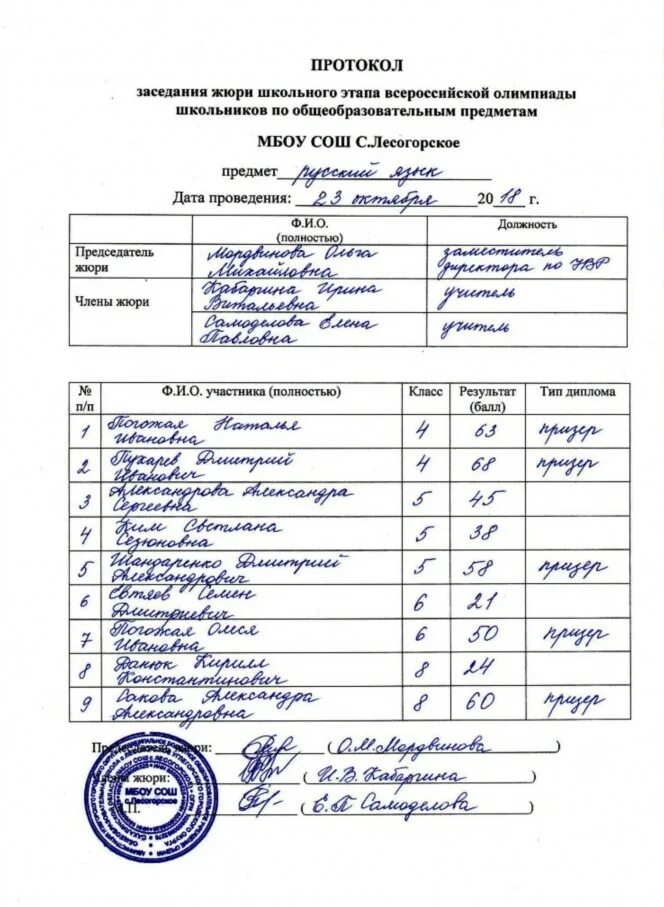 ПРОТОКОЛ
заседания жюри школьного этапа всероссийской олимпиады
школьников по общеобразовательным предметам
МБОУ СОШ С.Лесогорское
предмет русский язык
Дата проведения: 23 октября 2018 г.
Ф.И.О.
(полностью)
Должность
Председатель
жюри
Мордвинова Ольга
Михайловна
заместитель
директора по УВР
Члены жюри
Кабаргина Ирина
Витальевна
учитель
Самоделова Елена
Павловна
учитель
№
п/п
Ф.И.О. участника (полностью)
Класс
Результат
(балл)
Тип диплома
1 Погожая Наталья
Ивановна
4 63 призер
2 Пухарев Дмитрий
Иванович
4 68 призер
3 Александрова Александра
Сергеевна
5 45
4 Ким Светлана
Сезюновна
5 38
5 Шандаренко Дмитрий
Александрович
5 58 призер
6 Евтяев Семен
Дмитриевич
6 21
7 Погожая Олеся
Ивановна
6 50 призер
8 Данюк Кирилл
Константинович
8 24
9 Сакова Александра
Александровна
8 60 призер
Председатель жюри: ( О.М.Мордвинова )
Члены жюри: ( И.В.Кабаргина )
М.П. ( Е.П Самоделова )
МБОУ СОШ
с.Лесогорское